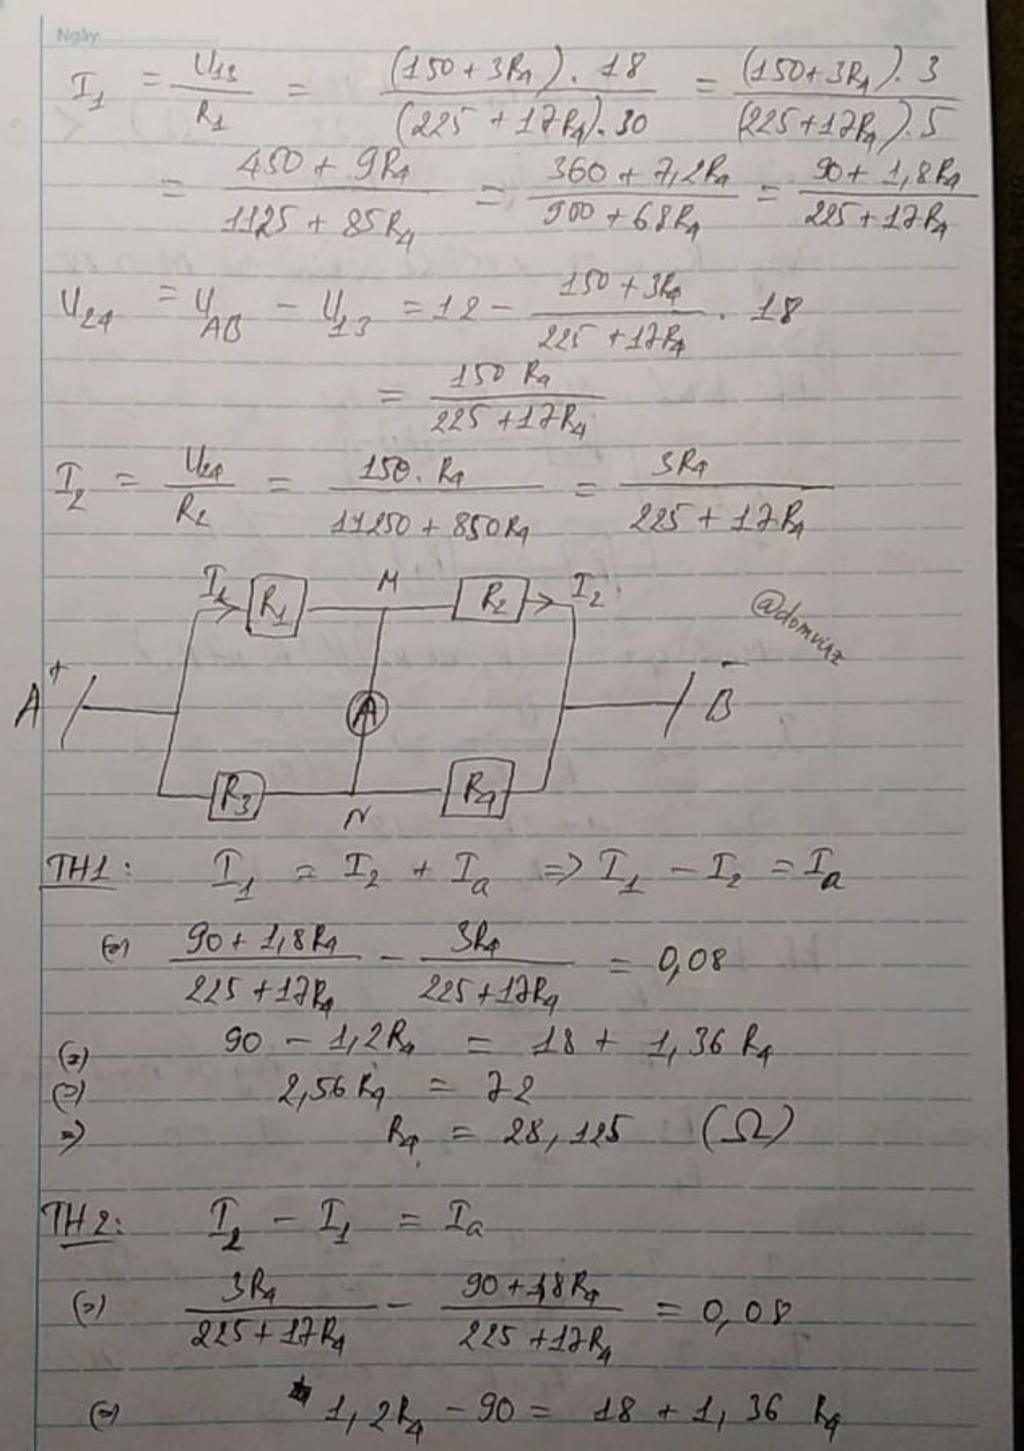 Ngày:
I₁ = U₁₃/R₁ = (150 + 3R₄).18/(225 + 17R₄).30 = (150 + 3R₄).3/(225 + 17R₄).5
= (450 + 9R₄)/(1125 + 85R₄) = (360 + 7,2R₄)/(900 + 68R₄) = (90 + 1,8R₄)/(225 + 17R₄)
U₂₄ = U_AB − U₁₃ = 12 − (150 + 3R₄)/(225 + 17R₄) . 18
= 150 R₄/(225 + 17R₄)
I₂ = U₂₄/R₂ = 150.R₄/(11250 + 850R₄) = 3R₄/(225 + 17R₄)
I₁ R₁ M R₂ I₂
@domviz
A + A − B
R₃ N R₄
TH1: I₁ = I₂ + Ia => I₁ − I₂ = Ia
(=) (90 + 1,8R₄)/(225 + 17R₄) − 3R₄/(225 + 17R₄) = 0,08
(=) 90 − 1,2R₄ = 18 + 1,36 R₄
(=) 2,56R₄ = 72
=) R₄ = 28,125 (Ω)
TH2: I₂ − I₁ = Ia
(=) 3R₄/(225 + 17R₄) − (90 + 1,8R₄)/(225 + 17R₄) = 0,08
(=) 1,2R₄ − 90 = 18 + 1,36 R₄